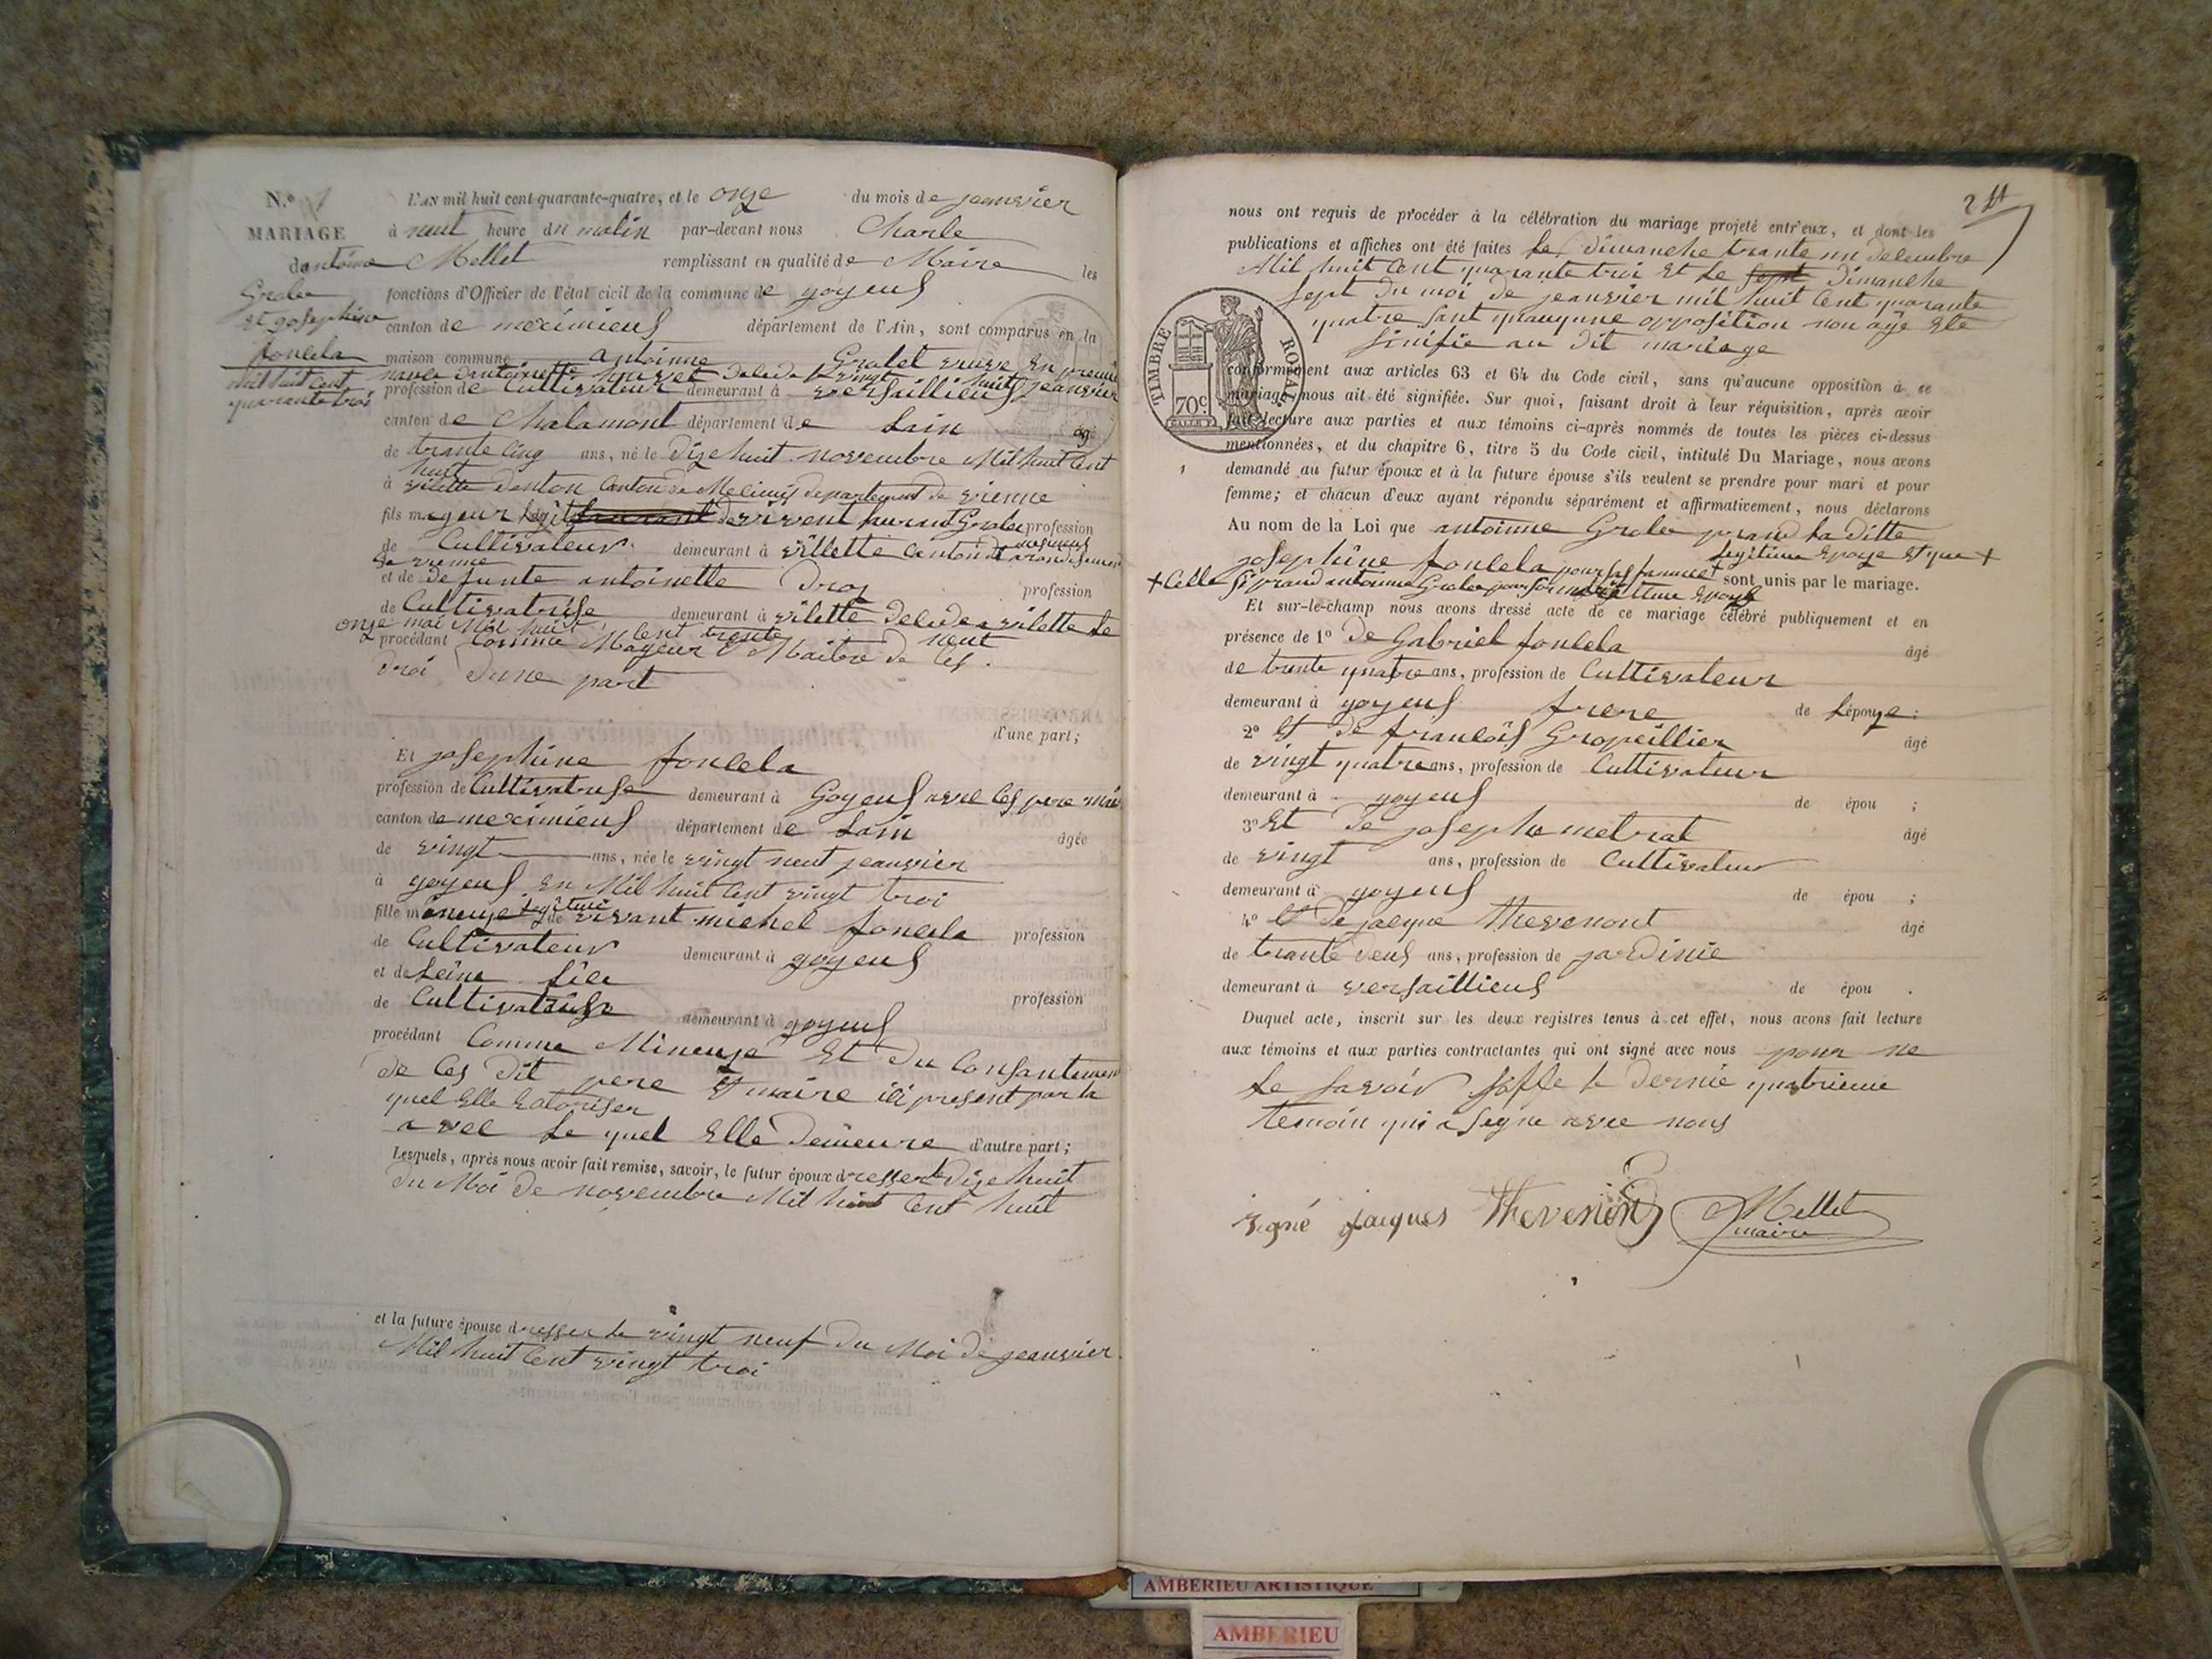 N.º 1 L'AN mil huit cent quarante-quatre, et le onze du mois de jeanvier
MARIAGE à neuf heure du matin par-devant nous Charle
dantoine Mellet remplissant en qualité de Maire les
Grolee fonctions d'Officier de l'état civil de la commune de joyeus
et josephine canton de meximieus département de l'Ain, sont comparus en la
fonlela maison commune antoinne Gralet veuve en premie
mil huit cent dantoinette deledee vingt huit jeanvier
quarante troi profession de Cultivateur demeurant à versaillieus
canton de Chalamont département de Lain âgé
de trante cinq ans, né le dizehuit novembre Mil huit cent
huit
à vilette danton Canton de departement de vienne
fils majeur de vivent laurant Grolee profession
de Cultivateur demeurant à villette
de vienne
et de defunte antoinette Droz profession
de Cultivatrise demeurant à vilette deledee a vilette le
onze mai Mil huit cent trente neuf
procédant Comme Mageur Maitre de Ces
droi dune part
d'une part;
Et josephine fonlela
profession de Cultivatrise demeurant à Goyeus avec Ces pere
canton de meximieus département de Lain âgée
de vingt ans, née le vingt neuf jeanvier
à goyeus En Mil huit Cent vingt troi
fille mineuze legitime de vivant michel fonlela profession
de Cultivateur demeurant à goyeus
et de
de Cultivatrise demeurant à goyeus profession
procédant Comme Mineuze Et du Consantemen
de Ces dit pere Et maire ici present par la
quel Elle Eatoriser
avec le quel Elle demeure d'autre part;
Lesquels, après nous avoir fait remise, savoir, le futur époux dresser le dize huit
du Moi de novembre Mil huit Cent huit
et la future épouse dresser le vingt neuf du Moi de jeanvier
Mil huit Cent vingt troi
211
nous ont requis de procéder à la célébration du mariage projeté entr'eux, et dont les
publications et affiches ont été faites le dimanche trante un delembre
Mil huit Cent quarante troi Et le sept Dimanche
sept du moi de jeanvier mil huit Cent quarante
quatre sant quauqune opposition non aÿe Ete
sinifie au dit mariage
TIMBRE ROYAL
70c
conformément aux articles 63 et 64 du Code civil, sans qu'aucune opposition à ce
mariage nous ait été signifiée. Sur quoi, faisant droit à leur réquisition, après avoir
fait lecture aux parties et aux témoins ci-après nommés de toutes les pièces ci-dessus
mentionnées, et du chapitre 6, titre 5 du Code civil, intitulé Du Mariage, nous avons
demandé au futur époux et à la future épouse s'ils veulent se prendre pour mari et pour
femme; et chacun d'eux ayant répondu séparément et affirmativement, nous déclarons
Au nom de la Loi que antoinne Grolee prand la ditte
josephine fonlela pour sas famme legitime Epoze Et que +
+ Celle si prand antoinne Grolee pour son sont unis par le mariage.
Et sur-le-champ nous avons dressé acte de ce mariage célébré publiquement et en
présence de 1º de Gabriel fonlela âgé
de trente quatre ans, profession de Cultivateur
demeurant à goyeus frere de Lépouze;
2º Et de franlois Gropeillier âgé
de vingt quatre ans, profession de Cultivateur
demeurant à goyeus de épou ;
3º Et de josephe metrat âgé
de vingt ans, profession de Cultivateur
demeurant à goyeus de épou ;
4º Et de jaeque Thevenont âgé
de trante deus ans, profession de jardinie
demeurant à versaillieus de épou .
Duquel acte, inscrit sur les deux registres tenus à cet effet, nous avons fait lecture
aux témoins et aux parties contractantes qui ont signé avec nous pour ne
le savoir soffe le dernie quatrieme
temoin qui a segne avec nous
signé jacques Thevenin Mellet
maire
AMBERIEU ARTISTIQUE
AMBERIEU